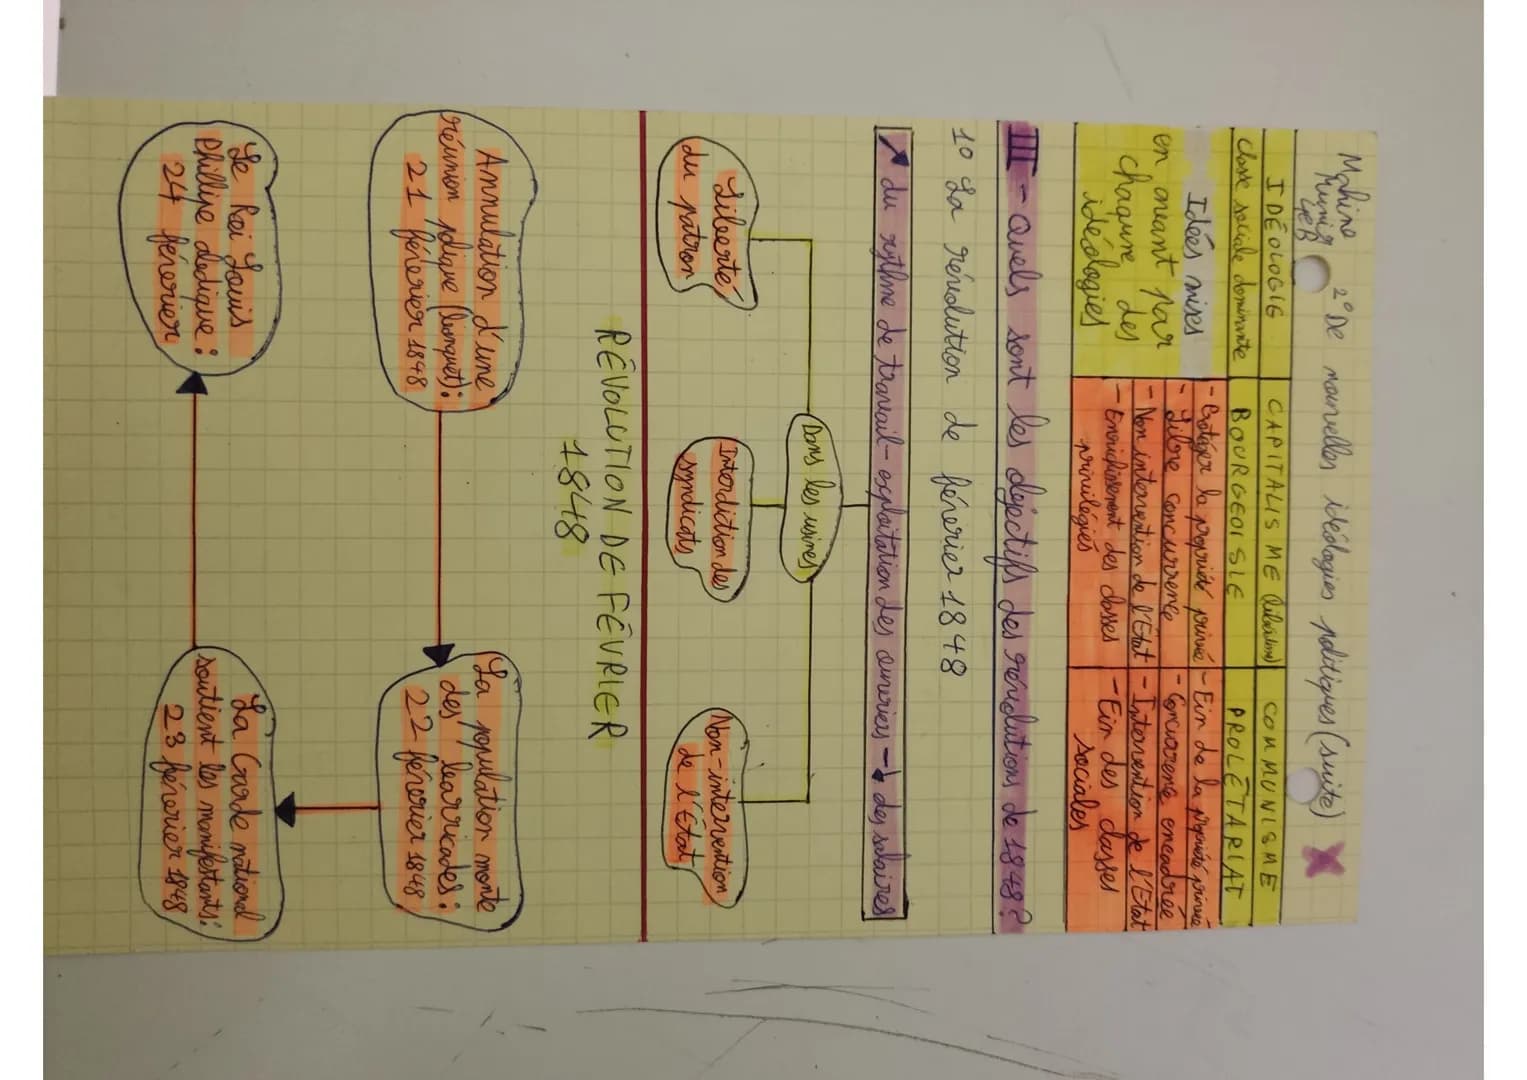 Mahino
Munir
4eB
2° De nouvelles idéologies politiques (suite)
IDÉOLOGIE
CAPITALISME (libéralisme)
COMMUNISME
Classe sociale dominante
BOURGEOISIE
PROLÉTARIAT
Idées mises
en avant par
chaque des
idéologies
- Protéger la propriété privée
- Libre concurrence
- Non intervention de l'État
- Enrichissement des classes
privilégiés
- Fin de la propriété privée
- Concurrence encadrée
- Intervention de l'État
- Fin des classes
sociales
III - Quels sont les objectifs des révolutions de 1848?
1° La révolution de février 1848
↗ du rythme de travail - exploitation des ouvriers - ↘ des salaires
Dans les usines
Liberté
du patron
Interdiction des
syndicats
Non-intervention
de l'État
RÉVOLUTION DE FÉVRIER
1848
Annulation d'une
réunion pdique (banquet):
21 février 1848
La population monte
des barricades:
22 février 1848
La Garde national
soutient les manifestants:
23 février 1848
Le Roi Louis
Phillipe abdique:
24 février